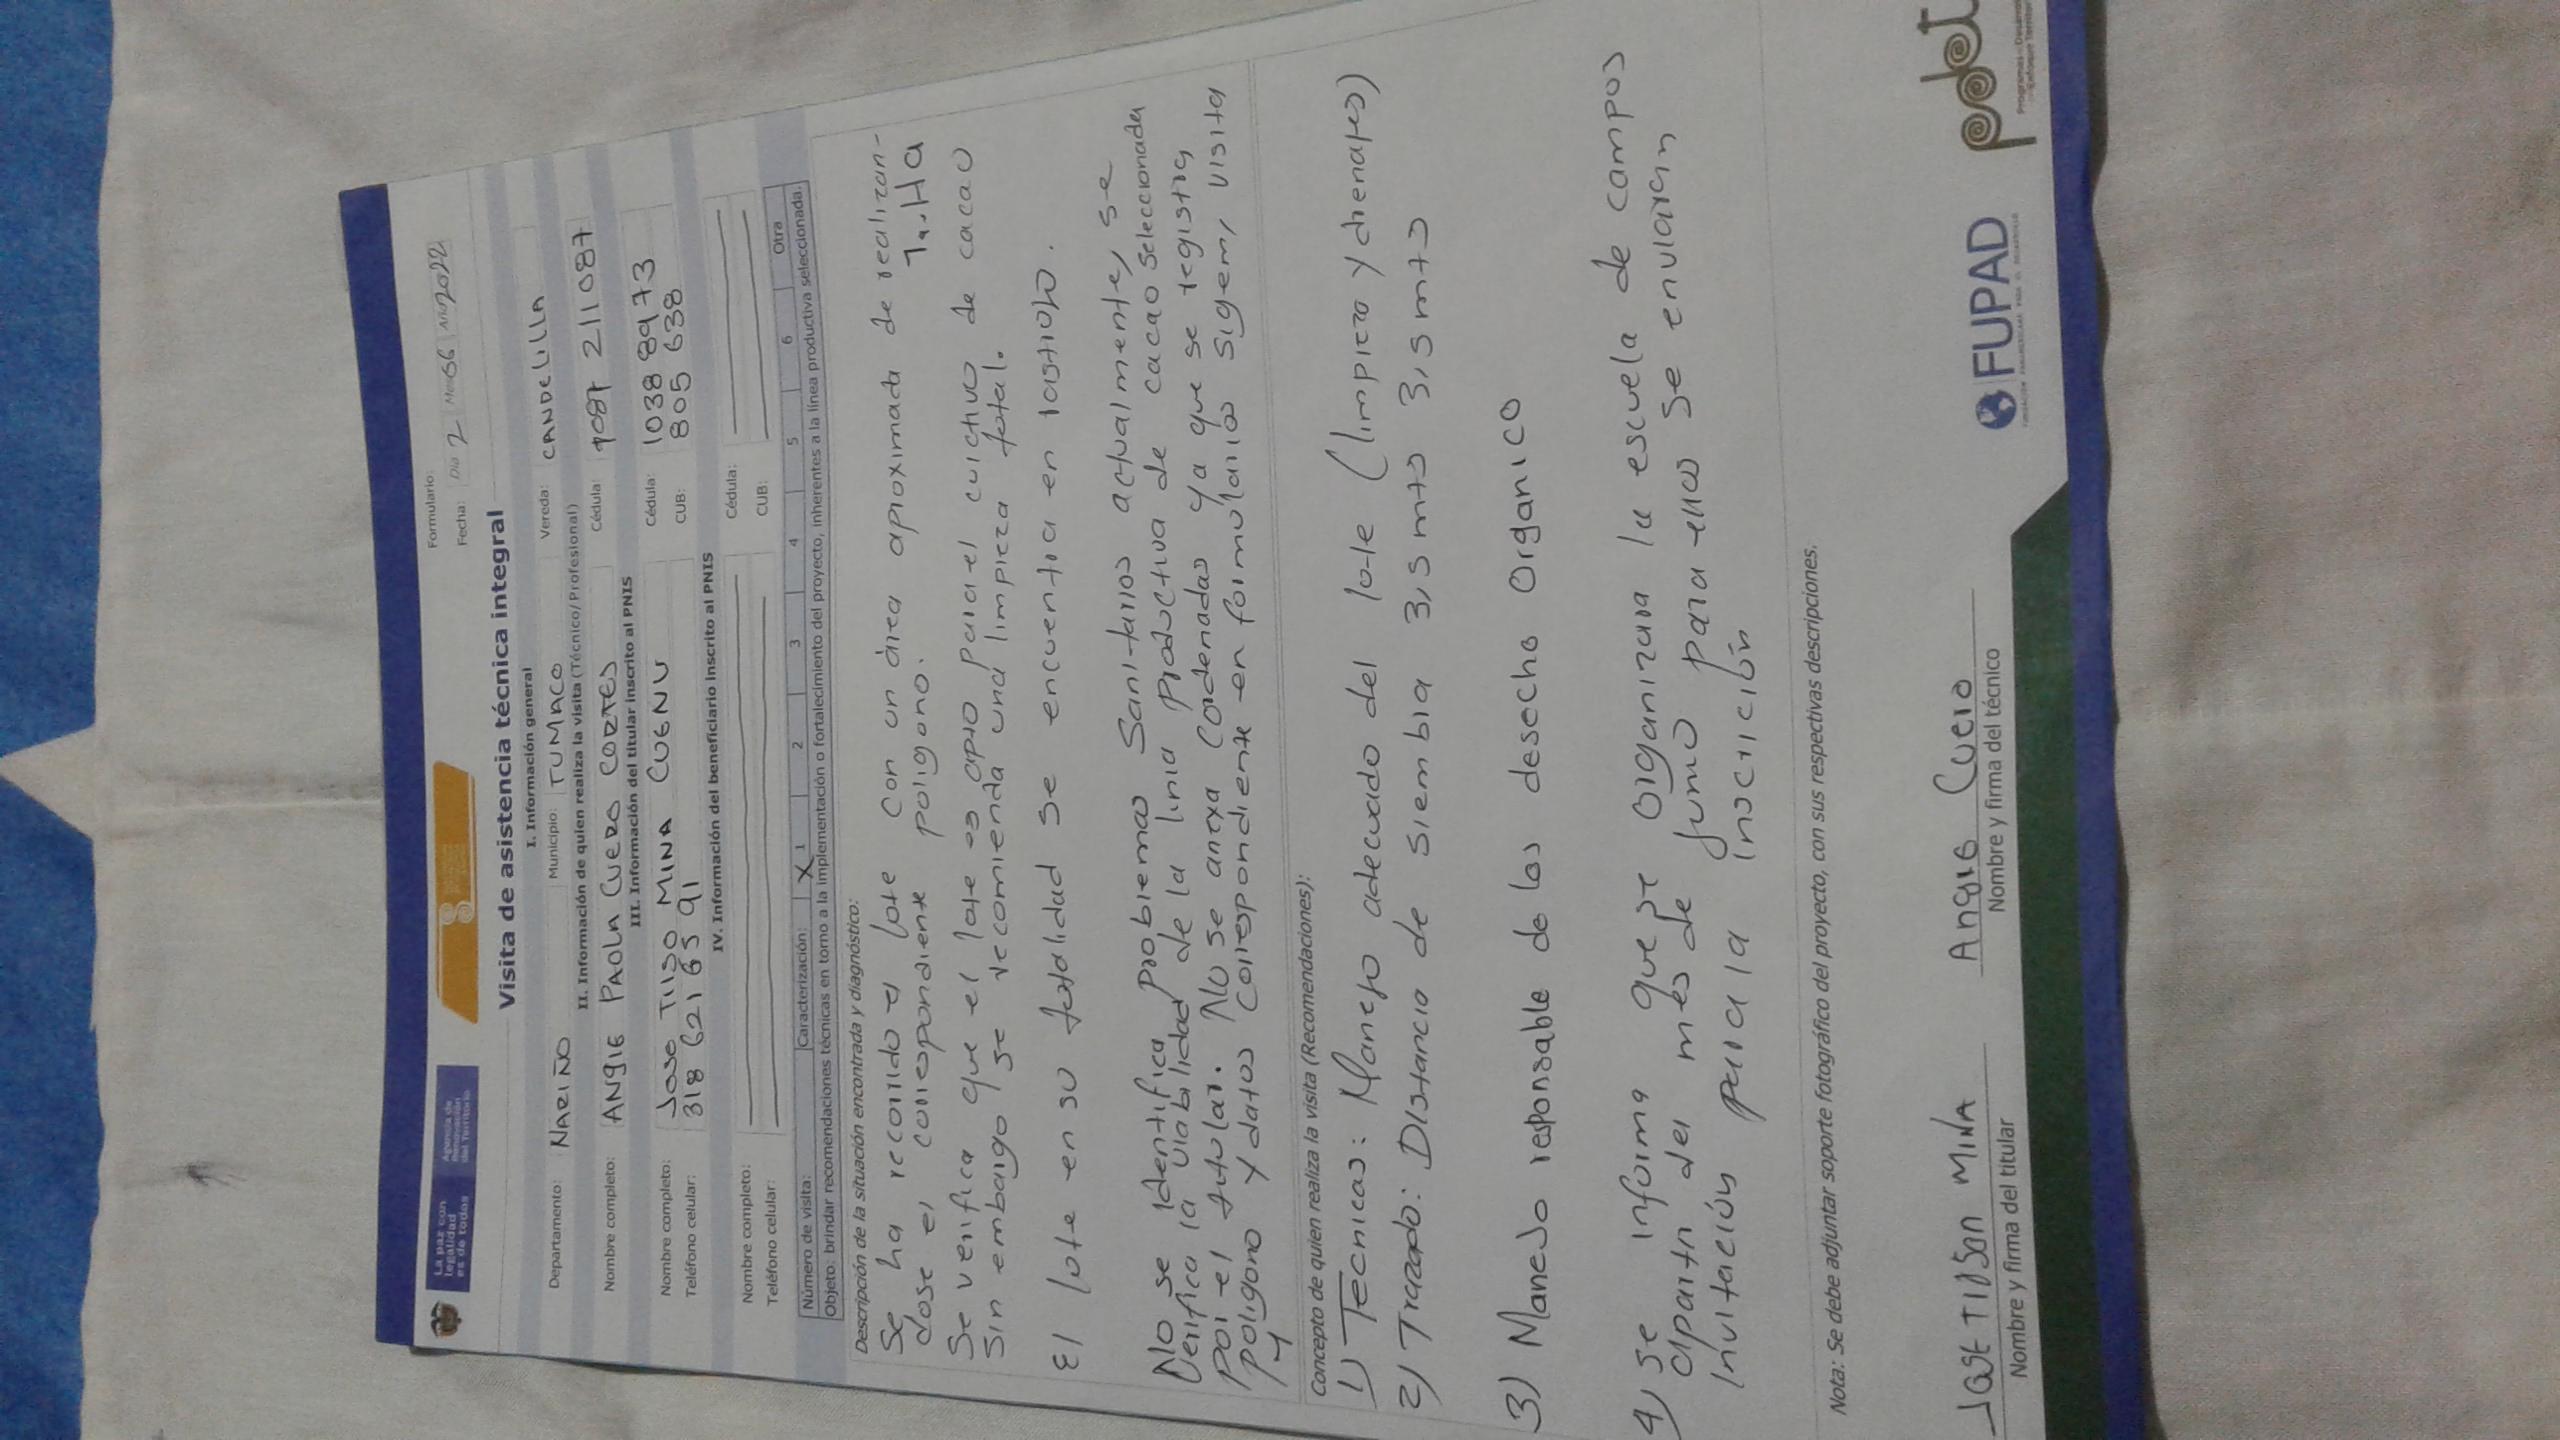 La paz con
legalidad
es de todos
Agencia de
Renovación
del Territorio
Formulario:
Fecha: Día 2 Mes 06 Año 2022
Visita de asistencia técnica integral
I. Información general
Departamento: NARIÑO Municipio: TUMACO Vereda: CANDELILLA
II. Información de quien realiza la visita (Técnico/Profesional)
Nombre completo: ANGIE PAOLA CUERO CORTES Cédula: 1087 211087
III. Información del titular inscrito al PNIS
Nombre completo: JOSE TIISO MINA CUENU Cédula: 1038 8973
Teléfono celular: 318 621 65 91 CUB: 805 638
IV. Información del beneficiario inscrito al PNIS
Nombre completo: Cédula:
Teléfono celular: CUB:
Número de visita: Caracterización: X 1 2 3 4 5 6 Otra
Objeto: brindar recomendaciones técnicas en torno a la implementación o fortalecimiento del proyecto, inherentes a la línea productiva seleccionada.
Descripción de la situación encontrada y diagnóstico:
Se ha recorrido el lote con un área aproximada de realizan-
dose el correspondiente poligono. Ha
Se verifica que el lote es apto para el cultivo de cacao
Sin embargo se recomienda una limpieza total.
El lote en su totalidad se encuentra en rastrojo.
No se Identifica problemas Sanitarios actualmente, se
Verifica la viabilidad de la linia productiva de cacao seleccionada
por el tutular. No se anexa Cordenadas ya que se registra
poligono y datos correspondiente en formularios sigem, visita
y
Concepto de quien realiza la visita (Recomendaciones):
1) Tecnicas: Manejo adecuado del lote (limpieza y drenajes)
2) Trazado: Distancia de siembra 3,5 mts 3,5 mts
3) Manejo responsable de los desecho Organico
4) se informa que se Organizara la escuela de campos
apartir del mes de junio para ellos se enviaran
Invitación para la Inscrición
Nota: Se debe adjuntar soporte fotográfico del proyecto, con sus respectivas descripciones.
JOSE TIISON MINA
Nombre y firma del titular
Angie Cuero
Nombre y firma del técnico
FUPAD
pdet